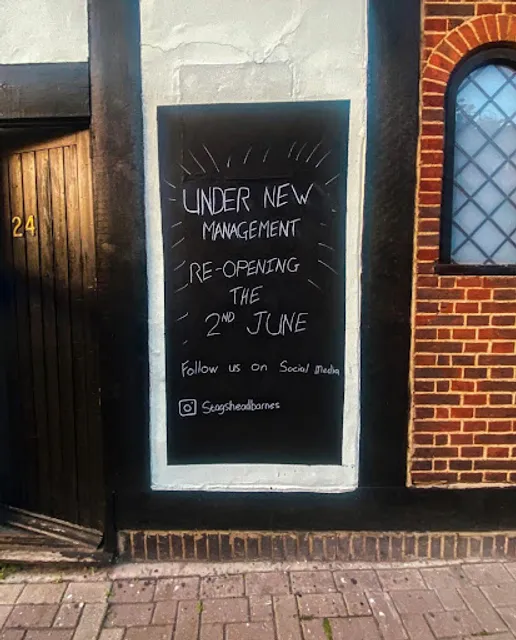 24
UNDER NEW
MANAGEMENT
RE-OPENING
THE
2ND JUNE
Follow us on Social Media
Stagsheadbarnes